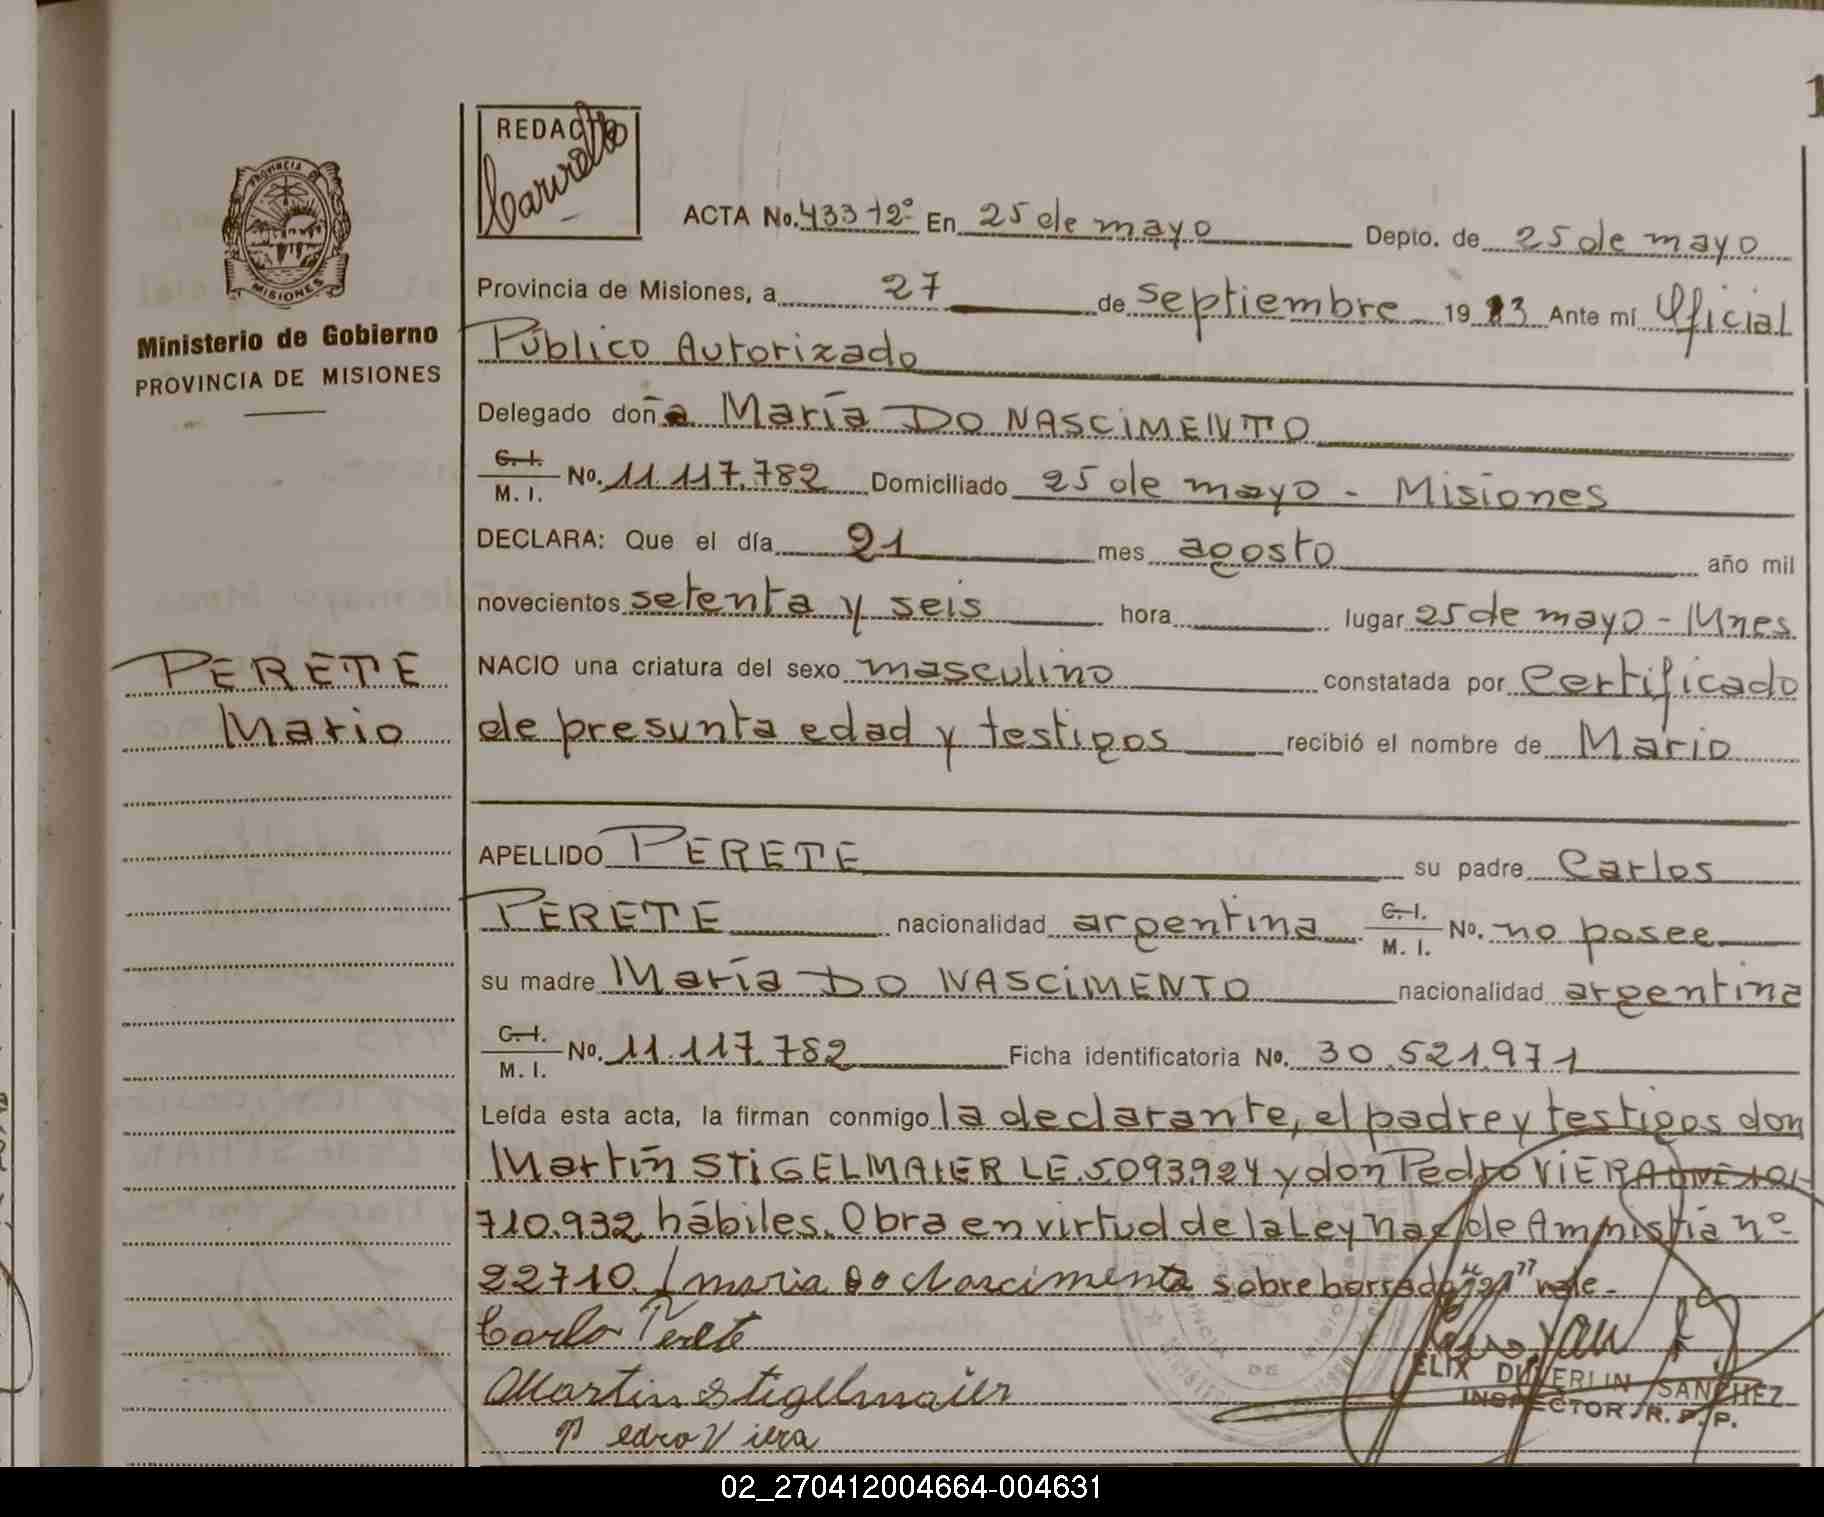 REDACTO
PROVINCIA DE
MISIONES
Ministerio de Gobierno
PROVINCIA DE MISIONES
PERETE
Mario
ACTA No. 433 T2º En 25 de mayo Depto. de 25 de mayo
Provincia de Misiones, a 27 de septiembre 1983 Ante mí Oficial
Público Autorizado
Delegado doña María DO NASCIMENTO
C. I. / M. I. No. 11.117.782 Domiciliado 25 de mayo - Misiones
DECLARA: Que el día 21 mes agosto año mil
novecientos setenta y seis hora lugar 25 de mayo - Mnes
NACIO una criatura del sexo masculino constatada por Certificado
de presunta edad y testigos recibió el nombre de Mario
APELLIDO PERETE su padre Carlos
PERETE nacionalidad argentina C. I. / M. I. No. no posee
su madre María DO NASCIMENTO nacionalidad argentina
C. I. / M. I. No. 11.117.782 Ficha identificatoria No. 30.521.971
Leída esta acta, la firman conmigo la declarante, el padre y testigos don
Martín STIGELMAIER LE.5.093.924 y don Pedro VIERA
710.932 hábiles. Obra en virtud de la Ley Nac de Amnistía nº
22710. maria Do Nascimento sobreborrado vale.
Carlo Perete
Martin Stigelmaier
Pedro Viera
DUVERLIN SANCHEZ
INSPECTOR R. P. P.
02_270412004664-004631